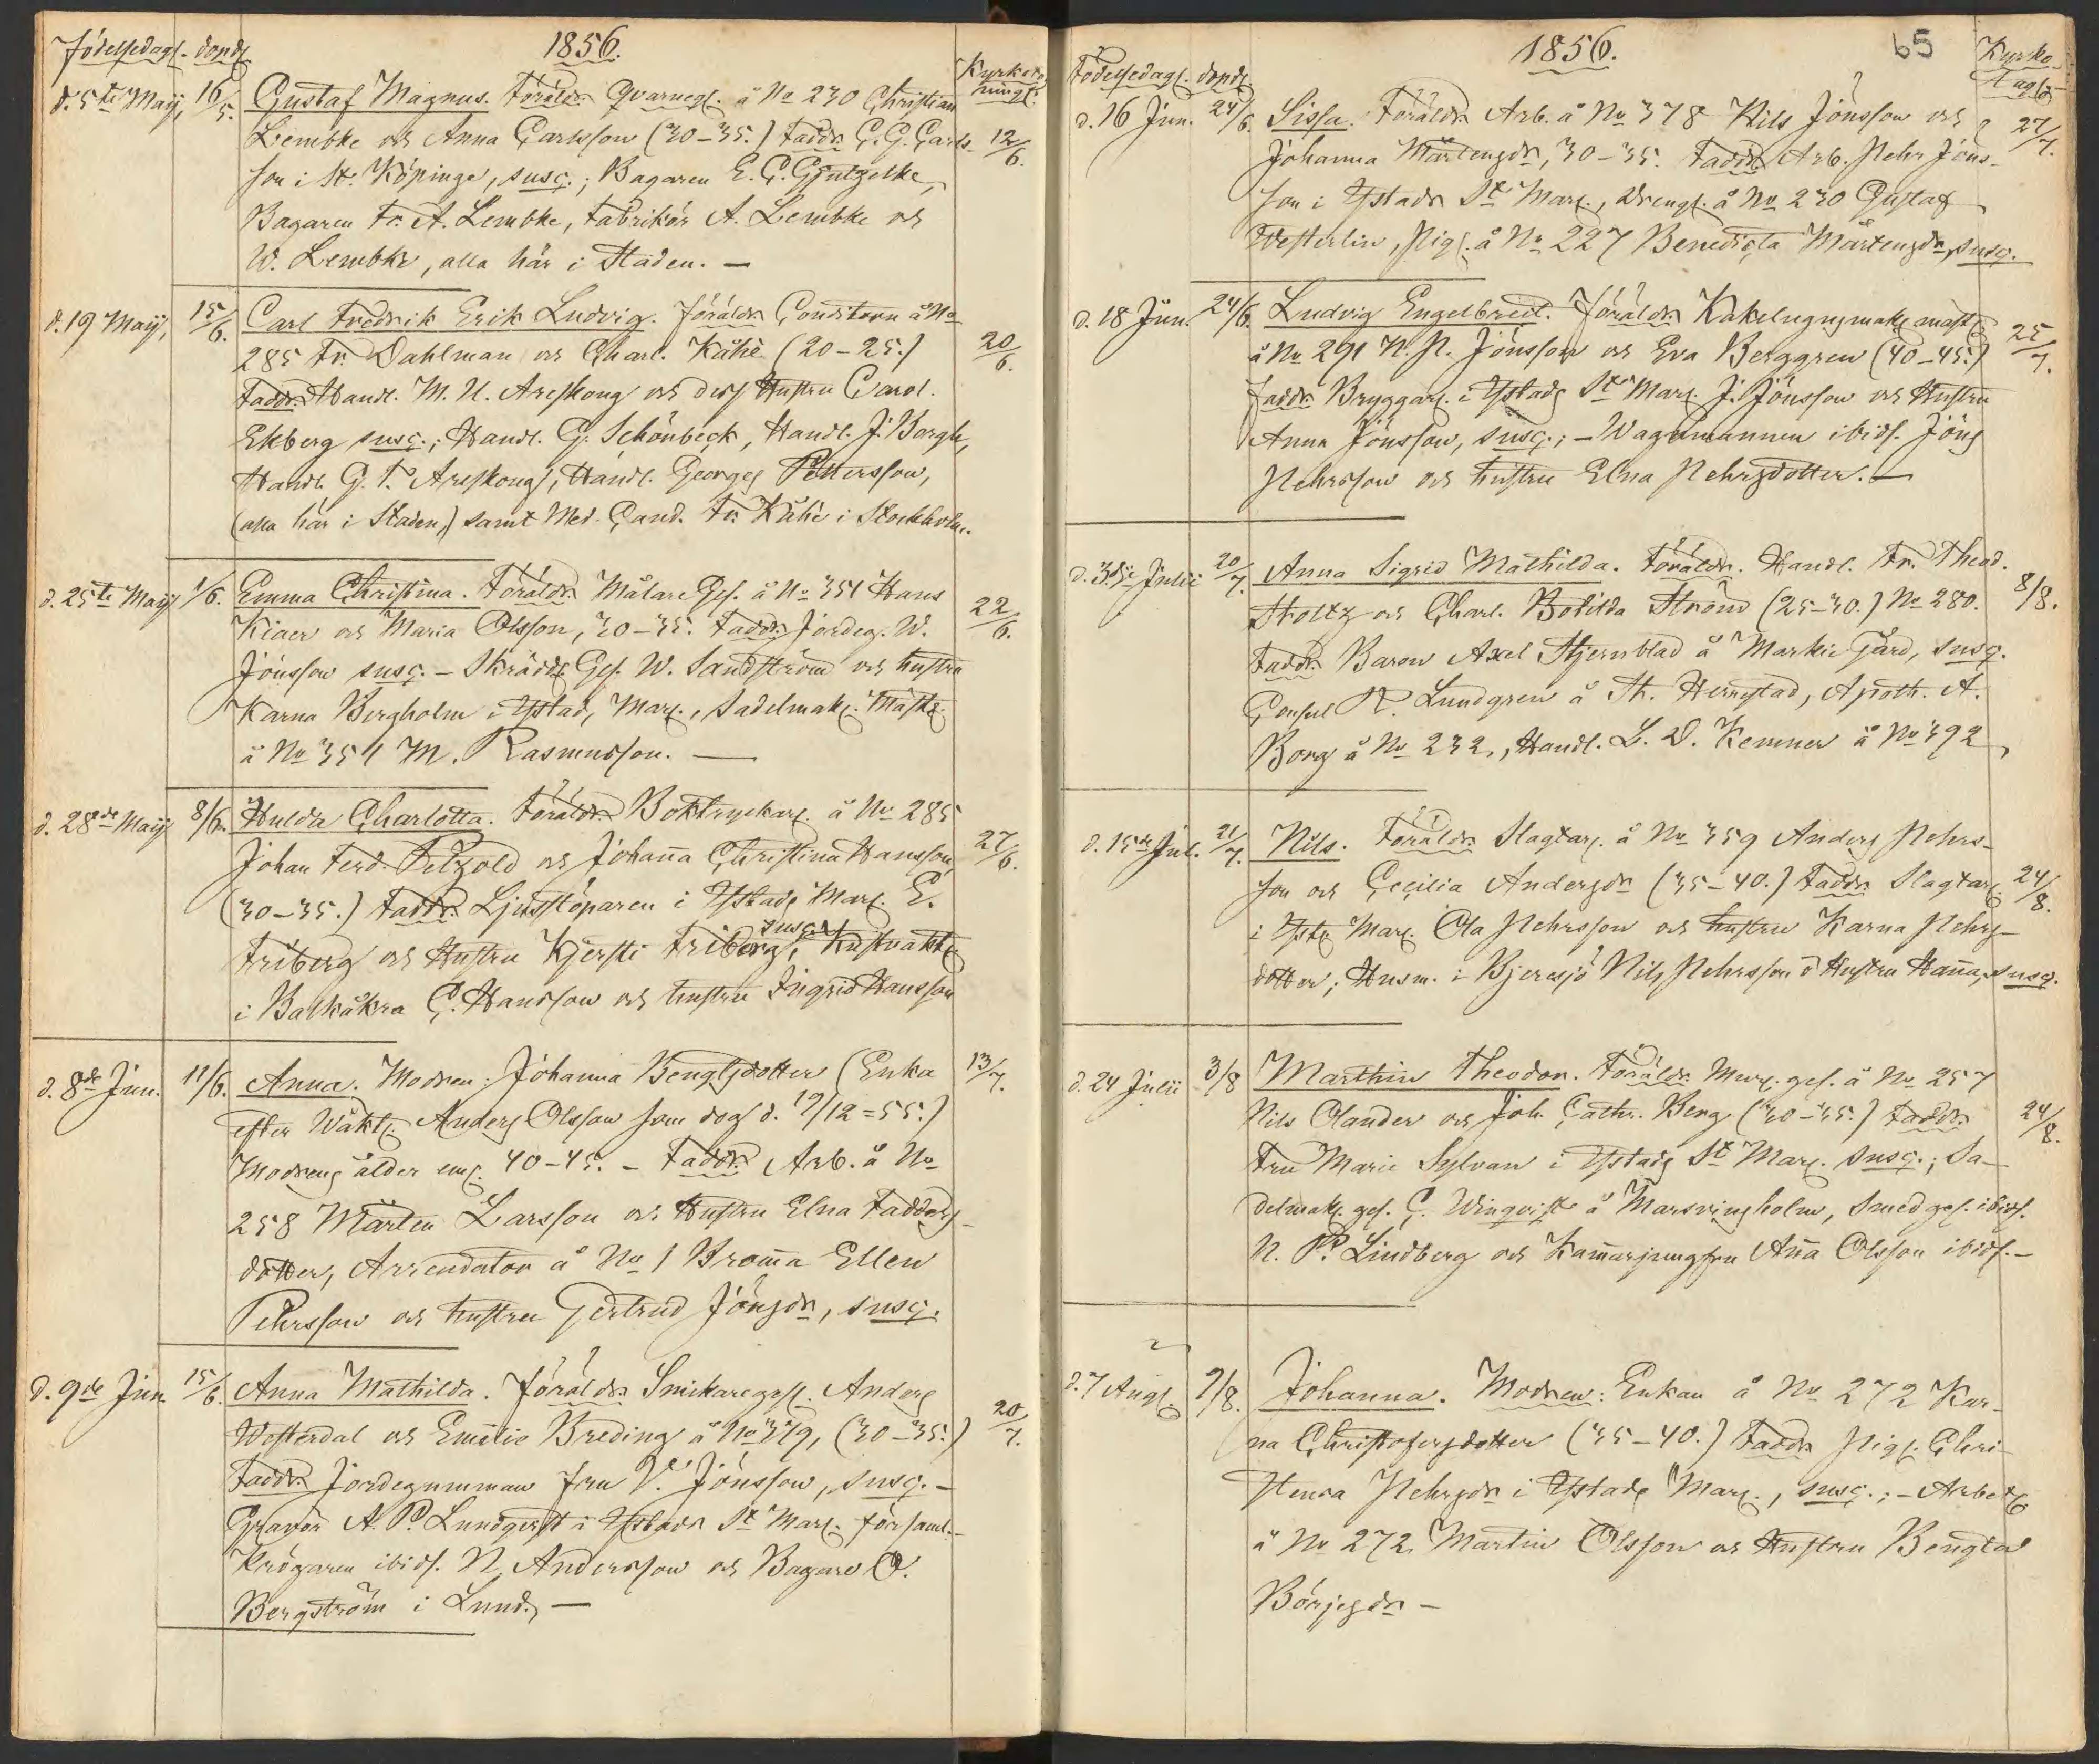 1856.
Födelsedag. Dopd.
Kyrkotag-
ningsd.
d. 5te Maij, 16/5. Gustaf Magnus. Föräldr. Qvarneg. å No 230 Christian
Lembke och Anna Carlsson (30-35.) Faddr. C. G. Carls- 12/6.
son i St. Köpinge, susc.; Bagaren E. C.
Bagaren Fr. A. Lembke, Fabrikör A. Lembke och
W. Lembke, alla här i Staden. —
d. 19 Maij, 15/6. Carl Fredrik Erik Ludvig. Föräldr. Conditorn å No
285 Fr. Dahlman och Charl. Kåhé (20-25.) 20/6.
Faddr. Handl. M. N. Areskoug och dess Hustru Carol.
Ekberg susc.; Handl. G. Schönbeck, Handl. J. Borgh,
Handl. G. F. Areskoug, Handl. Georges Pettersson,
(alla här i Staden,) samt Med. Cand. Fr. Kåhé i Stockholm.
d. 25te Maij 1/6. Emma Christina. Föräldr. Målare Ges. å No 354 Hans
Kiaer och Maria Olsson, 30-35. Faddr. Jordeg. W. 22/6.
Jönsson susc. - Skrädd. Ges. W. Sandström och hustru
Karna Bergholm i Ystad, Mar., Sadelmak. Mäst.
å No 354 M. Rasmusson. —
d. 28de Maij 8/6. Hulda Charlotta. Föräldr. Boktryckar. å No 285
Johan Ferd. Petzold och Johanna Christina Hansson, 27/6.
(30-35.) Faddr. Ljusstöparen i Ystads Mar. E.
susc.
Friberg och Hustru Kjersti Friberg, Kustvakt.
i Balkåkra C. Hansson och hustru Ingrid Hansson
d. 8de Jun. 11/6. Anna. Modren: Johanna Bengtsdotter (Enka 13/7.
efter Wakt. Anders Olsson som dog d. 19/12 = 55.)
Modrens ålder em. 40-45. - Faddr. Arb. å No
258 Mårten Larsson och Hustru Elna Fadders-
dotter, Arrendator å No 1 Bromma Ellen
Pehrsson och hustru Gertrud Jönsdr, susc.
d. 9de Jun. 15/6. Anna Mathilda. Föräldr. Snickareges. Anders
Westerdal och Emelie Breding å No 379, (30-35.) 20/7.
Faddr. Jordegumman fru V. Jönsson, susc. -
Gravör A. P. Lundqvist i Ystads St Mar. församl.-
Krögaren ibids. N. Andersson och Bagare O.
Bergström i Lund. —
1856.
65
Födelsedag. Dopd.
Kyrko-
tagd.
d. 16 Jun. 24/6. Sissa. Föräldr. Arb. å No 378 Nils Jönsson och 27/7.
Johanna Mårtensdr, 30-35. Faddr. Arb. Pehr Jöns-
son i Ystads St Mar., Dreng. å No 230 Gustaf
Westerlin, Pig. å No 227 Benedicta Mårtensdr, susc.
d. 18 Jun. 24/6. Ludvig Engelbrect. Föräldr. Kakelugnsmak. mäst.
å No 291 N. P. Jönsson och Eva Berggren (40-45.) 25/7.
Faddr. Bryggar. i Ystads St Mar. J. Jönsson och Hustru
Anna Jönsson, susc.; - Wagnmannen ibids. Jöns
Pehrsson och hustru Elna Pehrsdotter. —
d. 3die Julii 20/7. Anna Sigrid Mathilda. Föräldr. Handl. Fr. Theod. 8/8.
Stoltz och Charl. Botilda Ströms (25-30.) No 280.
Faddr. Baron Axel Stjernblad å Markie Gård, susc.
Consul R. Lundgren å St. Herrestad, Apoth. A.
Borg å No 232, Handl. L. D. Kemner å No 392
d. 15de Jul. 21/7. Nils. Föräldr. Slagtar. å No 359 Anders Pehrs-
son och Cecilia Andersdr (35-40.) Faddr. Slagtar. 24/8.
i Yst. Mar. Ola Pehrsson och hustru Karna Pehrs-
dotter; Husm. i Bjeresjö Nils Pehrsson o Hustru Hanna, susc.
d. 24 Julii 3/8 Marthin Theodor. Föräldr. Mur. ges. å No 257
Nils Olander och Joh. Cathr. Berg (30-35.) Faddr. 24/8.
Fru Marie Sylvan i Ystads St Mar. susc.; Sa-
delmak. ges. C. Winqvist å Marsvingsholm, Smedges. ibids.
N. P. Lindberg och Kammarjungfru Anna Olsson ibids. -
d. 7 Aug. 9/8. Johanna. Modren: Enkan å No 272 Kar-
na Christofersdotter (35-40.) Faddr. Pig. Chri-
stensa Pehrsdr i Ystads Mar., susc.; - Arbet.
å No 272 Martin Olsson och Hustru Bengta
Börjesdr -